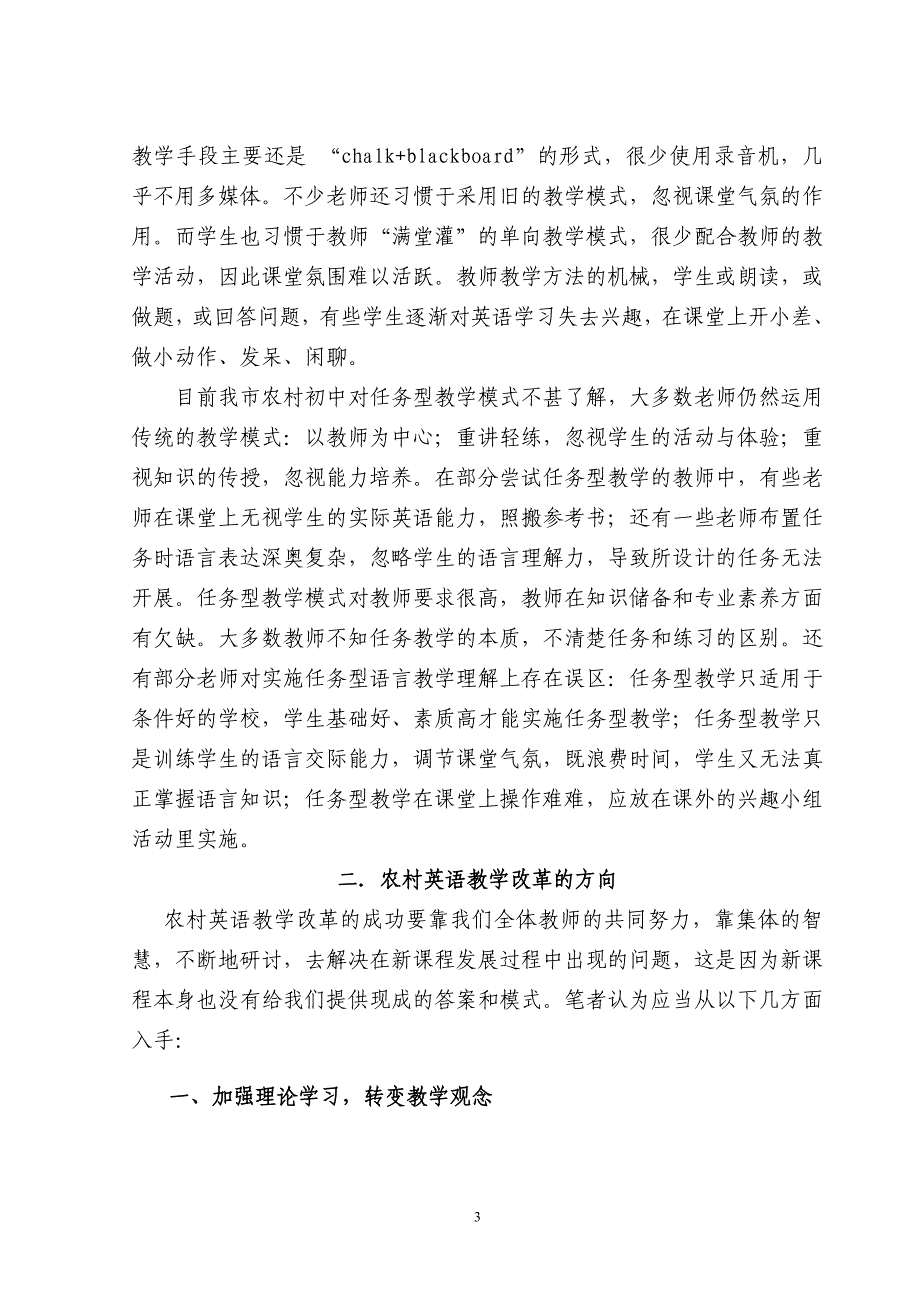 教学手段主要还是 “chalk+blackboard”的形式，很少使用录音机，几
乎不用多媒体。不少老师还习惯于采用旧的教学模式，忽视课堂气氛的作
用。而学生也习惯于教师“满堂灌”的单向教学模式，很少配合教师的教
学活动，因此课堂氛围难以活跃。教师教学方法的机械，学生或朗读，或
做题，或回答问题，有些学生逐渐对英语学习失去兴趣，在课堂上开小差、
做小动作、发呆、闲聊。
目前我市农村初中对任务型教学模式不甚了解，大多数老师仍然运用
传统的教学模式：以教师为中心；重讲轻练，忽视学生的活动与体验；重
视知识的传授，忽视能力培养。在部分尝试任务型教学的教师中，有些老
师在课堂上无视学生的实际英语能力，照搬参考书；还有一些老师布置任
务时语言表达深奥复杂，忽略学生的语言理解力，导致所设计的任务无法
开展。任务型教学模式对教师要求很高，教师在知识储备和专业素养方面
有欠缺。大多数教师不知任务教学的本质，不清楚任务和练习的区别。还
有部分老师对实施任务型语言教学理解上存在误区：任务型教学只适用于
条件好的学校，学生基础好、素质高才能实施任务型教学；任务型教学只
是训练学生的语言交际能力，调节课堂气氛，既浪费时间，学生又无法真
正掌握语言知识；任务型教学在课堂上操作难难，应放在课外的兴趣小组
活动里实施。
二．农村英语教学改革的方向
农村英语教学改革的成功要靠我们全体教师的共同努力，靠集体的智
慧，不断地研讨，去解决在新课程发展过程中出现的问题，这是因为新课
程本身也没有给我们提供现成的答案和模式。笔者认为应当从以下几方面
入手：
一、加强理论学习，转变教学观念
3